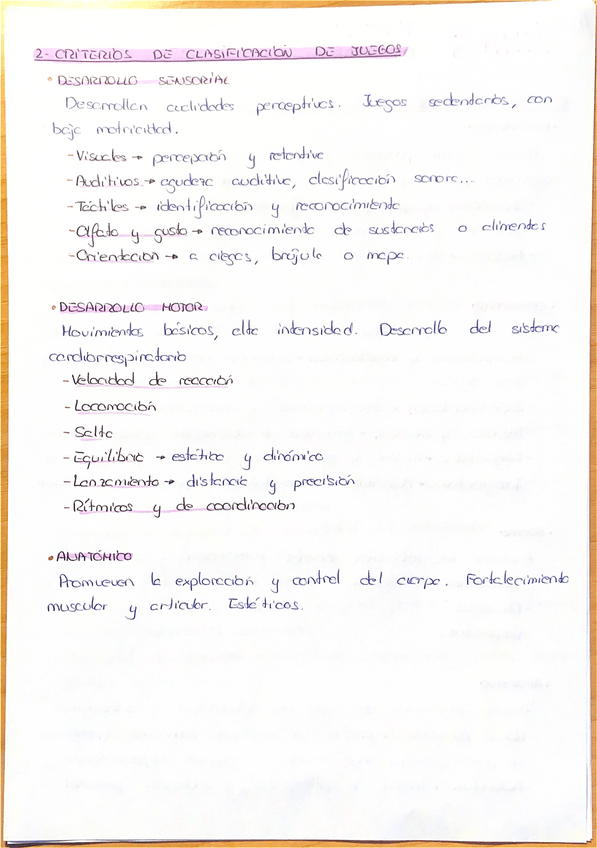 2- CRITERIOS DE CLASIFICACIÓN DE JUEGOS
• DESARROLLO SENSORIAL
Desarrollan cualidades perceptivas. Juegos sedentarios, con
baja motricidad.
- Visuales → percepción y retentiva
- Auditivos → agudeza auditiva, clasificación sonora...
- Táctiles → identificación y reconocimiento
- Olfato y gusto → reconocimiento de sustancias o alimentos
- Orientación → a ciegas, brújula o mapa.
• DESARROLLO MOTOR
Movimientos básicos, alta intensidad. Desarrollo del sistema
cardiorrespiratorio
- Velocidad de reacción
- Locomoción
- Salto
- Equilibrio → estático y dinámico
- Lanzamiento → distancia y precisión
- Rítmicos y de coordinación
• ANATÓMICO
Promueven la exploración y control del cuerpo. Fortalecimiento
muscular y articular. Estáticos.